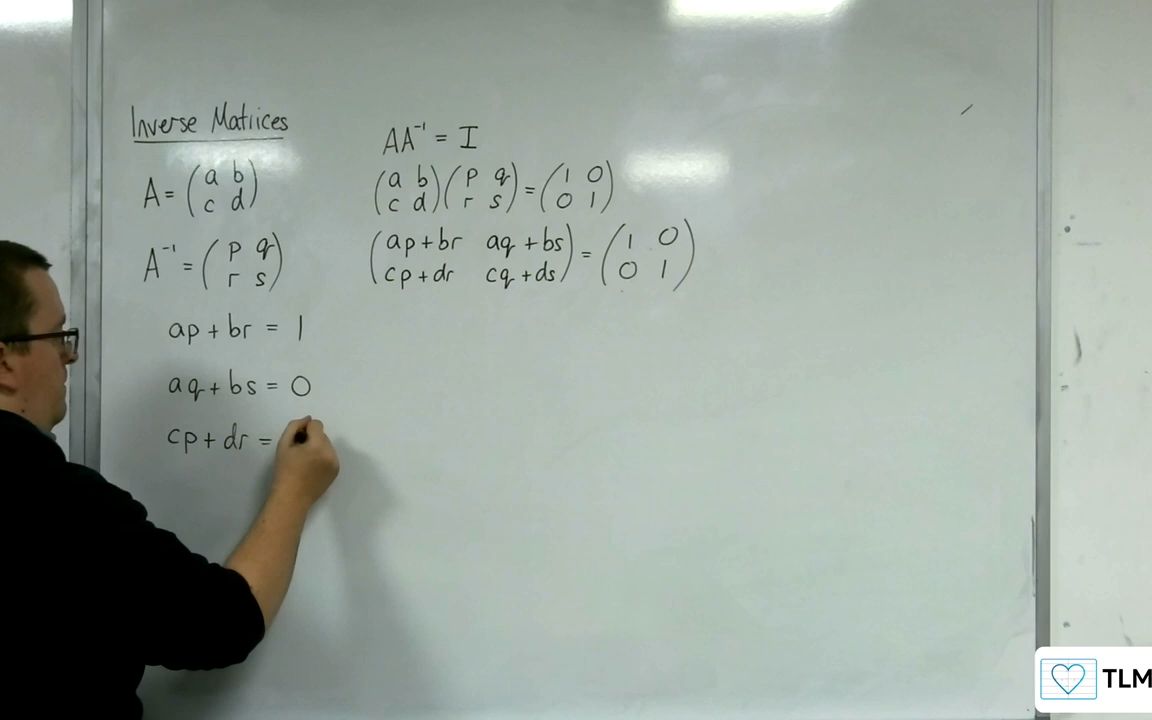 Inverse Matrices
A = (a b
c d)
A⁻¹ = (p q
r s)
ap + br = 1
aq + bs = 0
cp + dr =
AA⁻¹ = I
(a b (p q = (1 0
c d) r s) 0 1)
(ap + br aq + bs = (1 0
cp + dr cq + ds) 0 1)
TLM